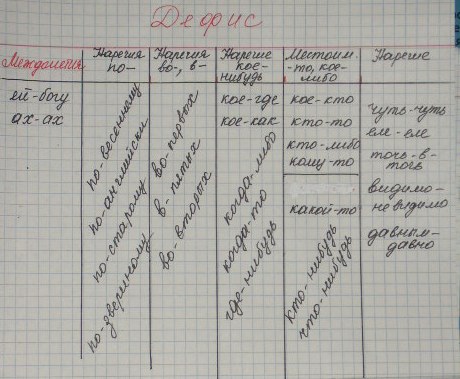 Дефис
Междометия
ей-богу
ах-ах
Наречия
по-
по-весеннему
по-английски
по-старому
по-звериному
Наречия
во-, в-
во-первых
в-пятых
во-вторых
Наречие
кое-
нибудь
кое-где
кое-как
когда-либо
когда-то
где-нибудь
Местоим.
-то, кое-
либо
кое-кто
кто-то
кто-либо
кому-то
какой-то
кто-нибудь
что-нибудь
Наречие
чуть-чуть
еле-еле
точь-в-
точь
видимо-
невидимо
давным-
давно